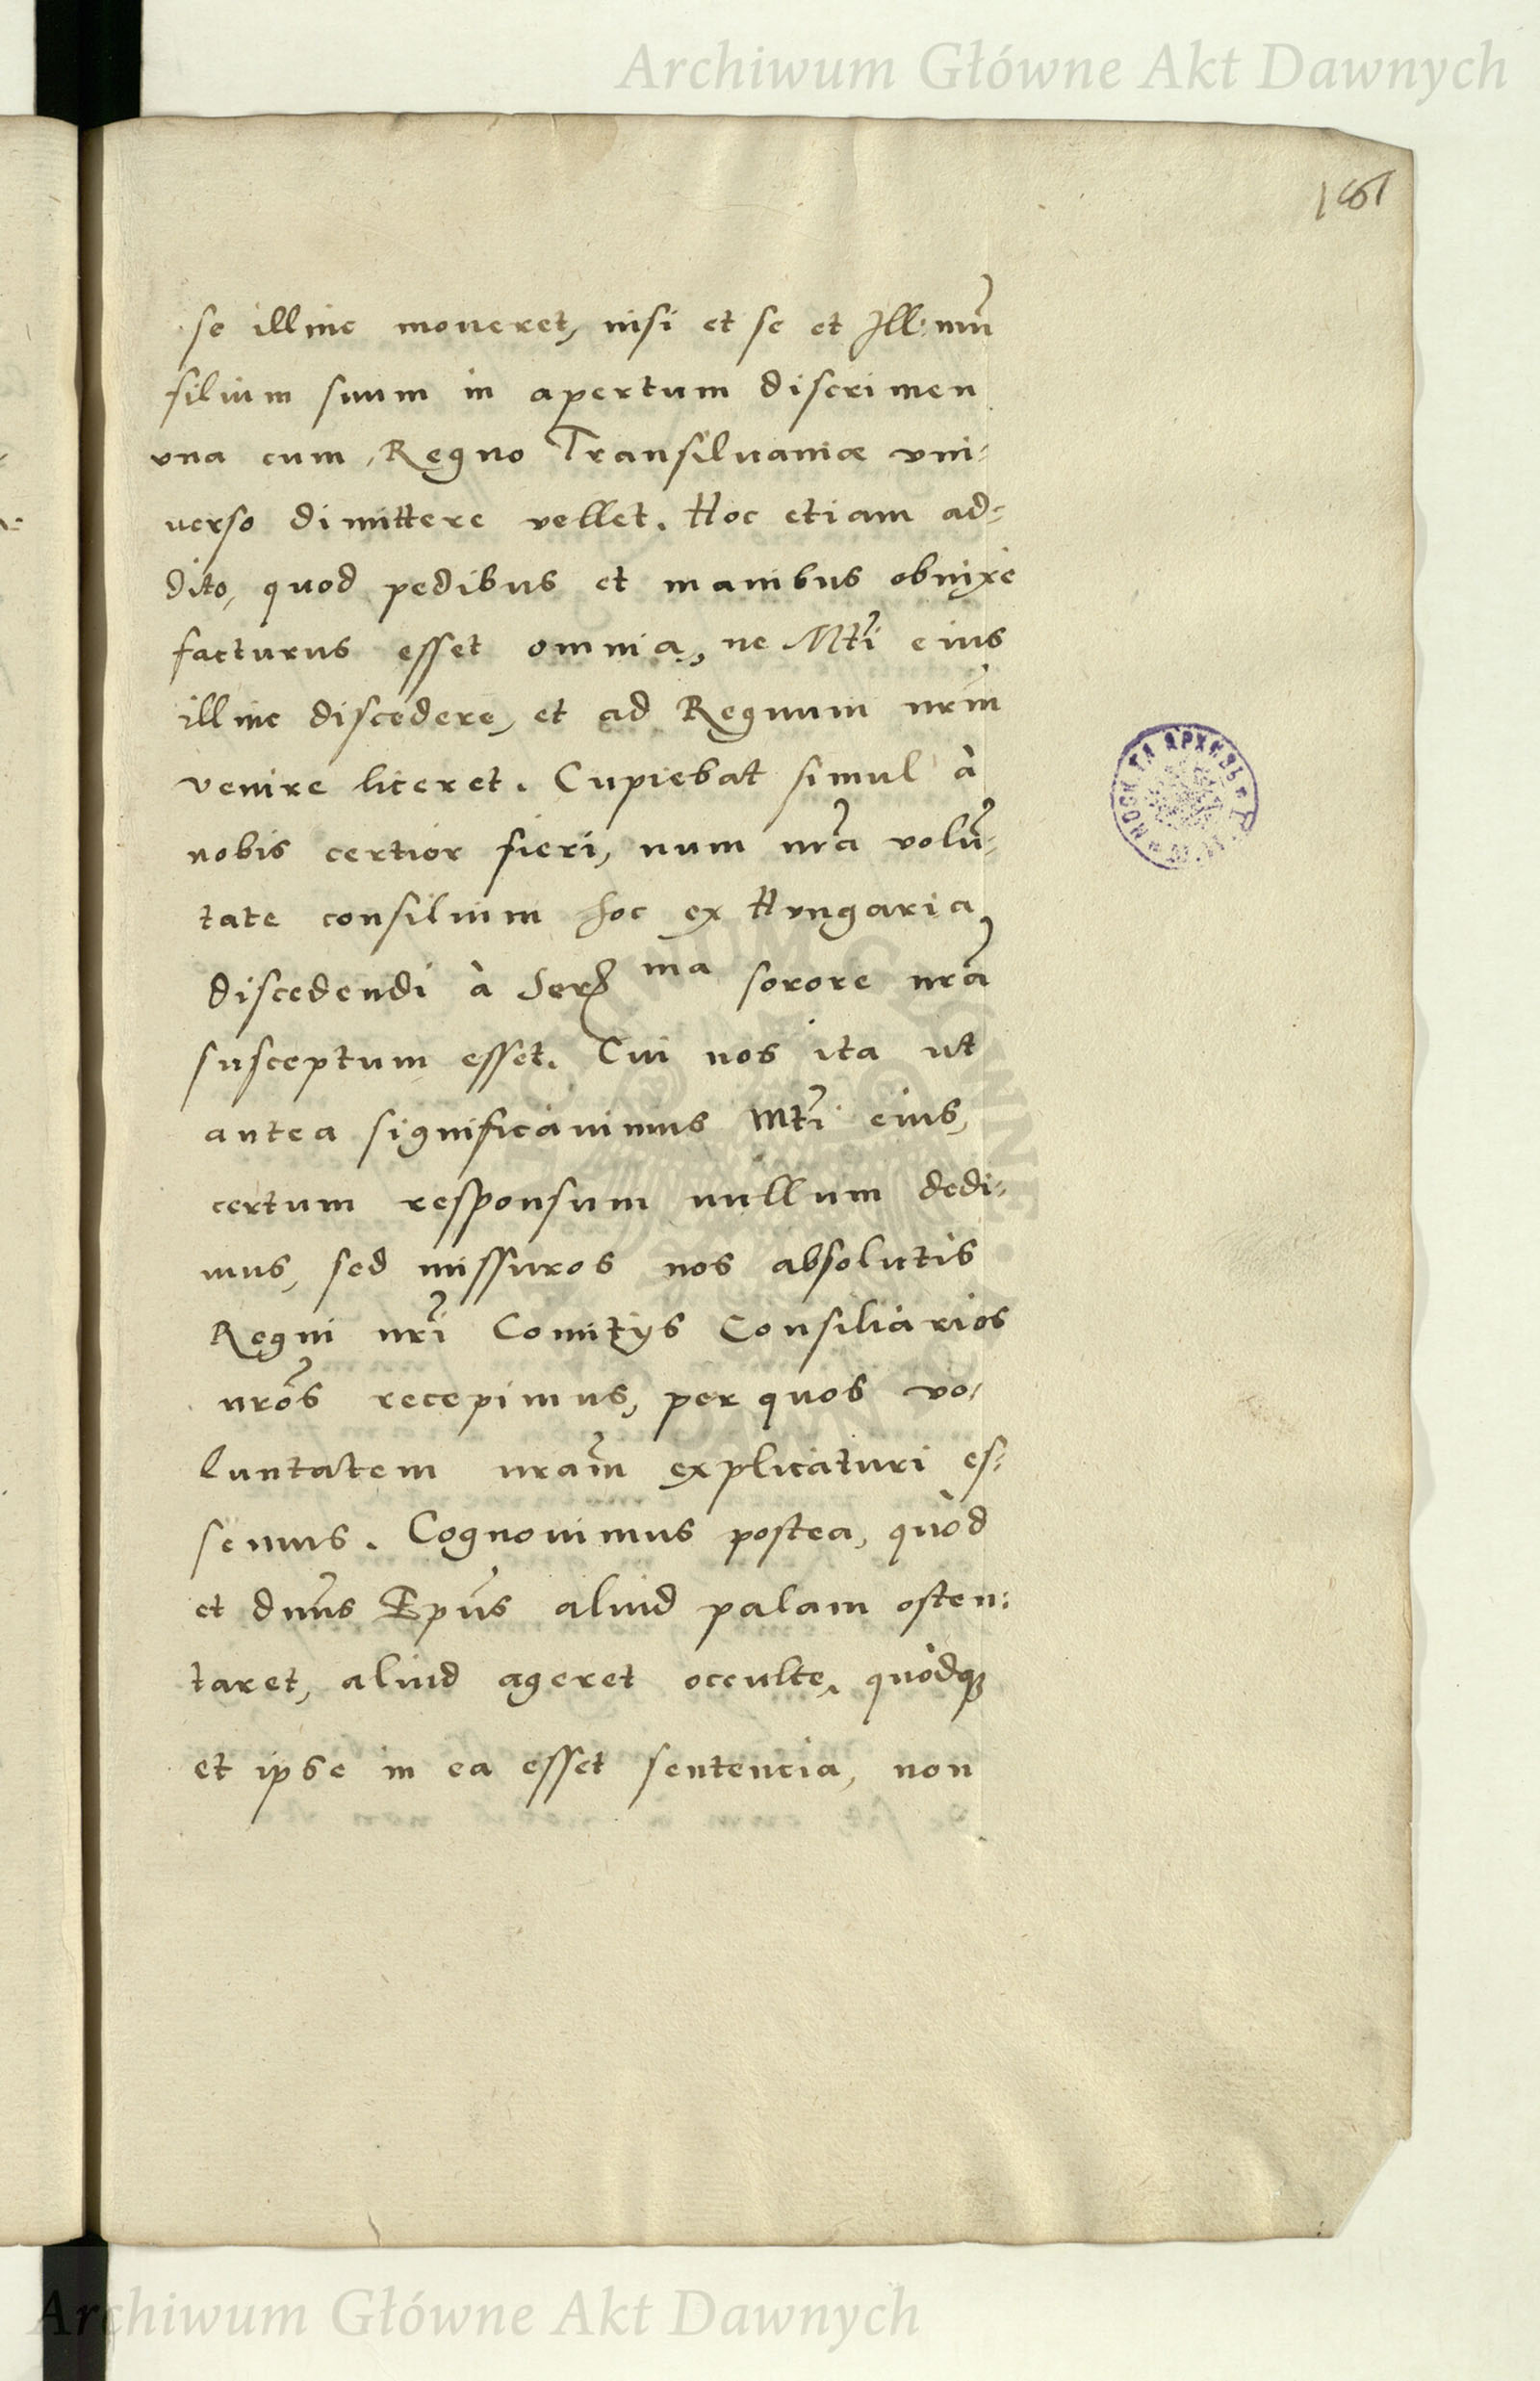 Archiwum Główne Akt Dawnych
se illinc moueret, nisi et se et Ill: mũ
filium suum in apertum discrimen
vna cum Regno Transiluaniæ vni-
uerso dimittere vellet. Hoc etiam ad-
dito, quod pedibus et manibus obnixe
facturus esset omnia, ne Mti eius
illinc discedere, et ad Regnum nrm
venire liceret. Cupiebat simul à
nobis certior fieri, num nra volũ-
tate consilium hoc ex Hungaria
discedendi à Ser ma sorore nra
susceptum esset. Cui nos ita ut
antea significauimus Mti eius,
certum responsum nullum dedi-
mus, sed missuros nos absolutis
Regni nri Comitijs Consiliarios
nros recepimus, per quos vo-
luntatem nram explicaturi es-
semus. Cognouimus postea, quòd
et dnus Epus aliud palam osten:
taret, aliud ageret occulte, quòdq;
et ipse in ea esset sentencia, non
Archiwum Główne Akt Dawnych